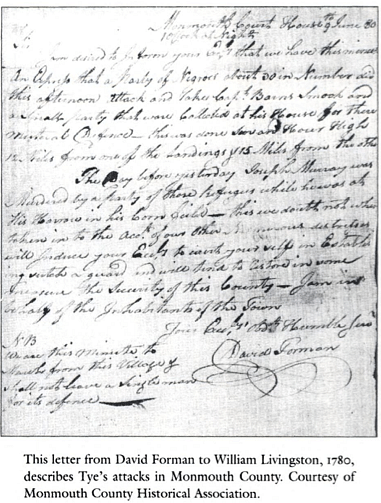 Monmouth Court House 9 June 80
10 oClock at Night
Sir
I am desired to inform your Excy that we have this minute
An Express that a Party of Negros about 30 in Number did
this afternoon attack and take Capt. Barns Smock and
a Small party that ware Collected at his House for there
Mutual Defence — this was done Sun an Hour High
12 Miles from one of the Landings & 15 Miles from the other
The Day before yesterday Joseph Murray was
Murdered by a party of those Refugees while he was at
His Harrow in his Corn field — this we doubt not when
taken in to the Acct. of our other Numerous distresses
will Induce your Excy to exert your self in Establ
ing sutch a guard as will tend to restore in some
measure the Security of this County — I am in
behalf of the Inhabitants of the Town
Your Excys. Obdt. Humble Serv
David Forman
NB
We are this Minute to
March from this Village &
Shall not leave a Single man
for its defence
This letter from David Forman to William Livingston, 1780,
describes Tye's attacks in Monmouth County. Courtesy of
Monmouth County Historical Association.